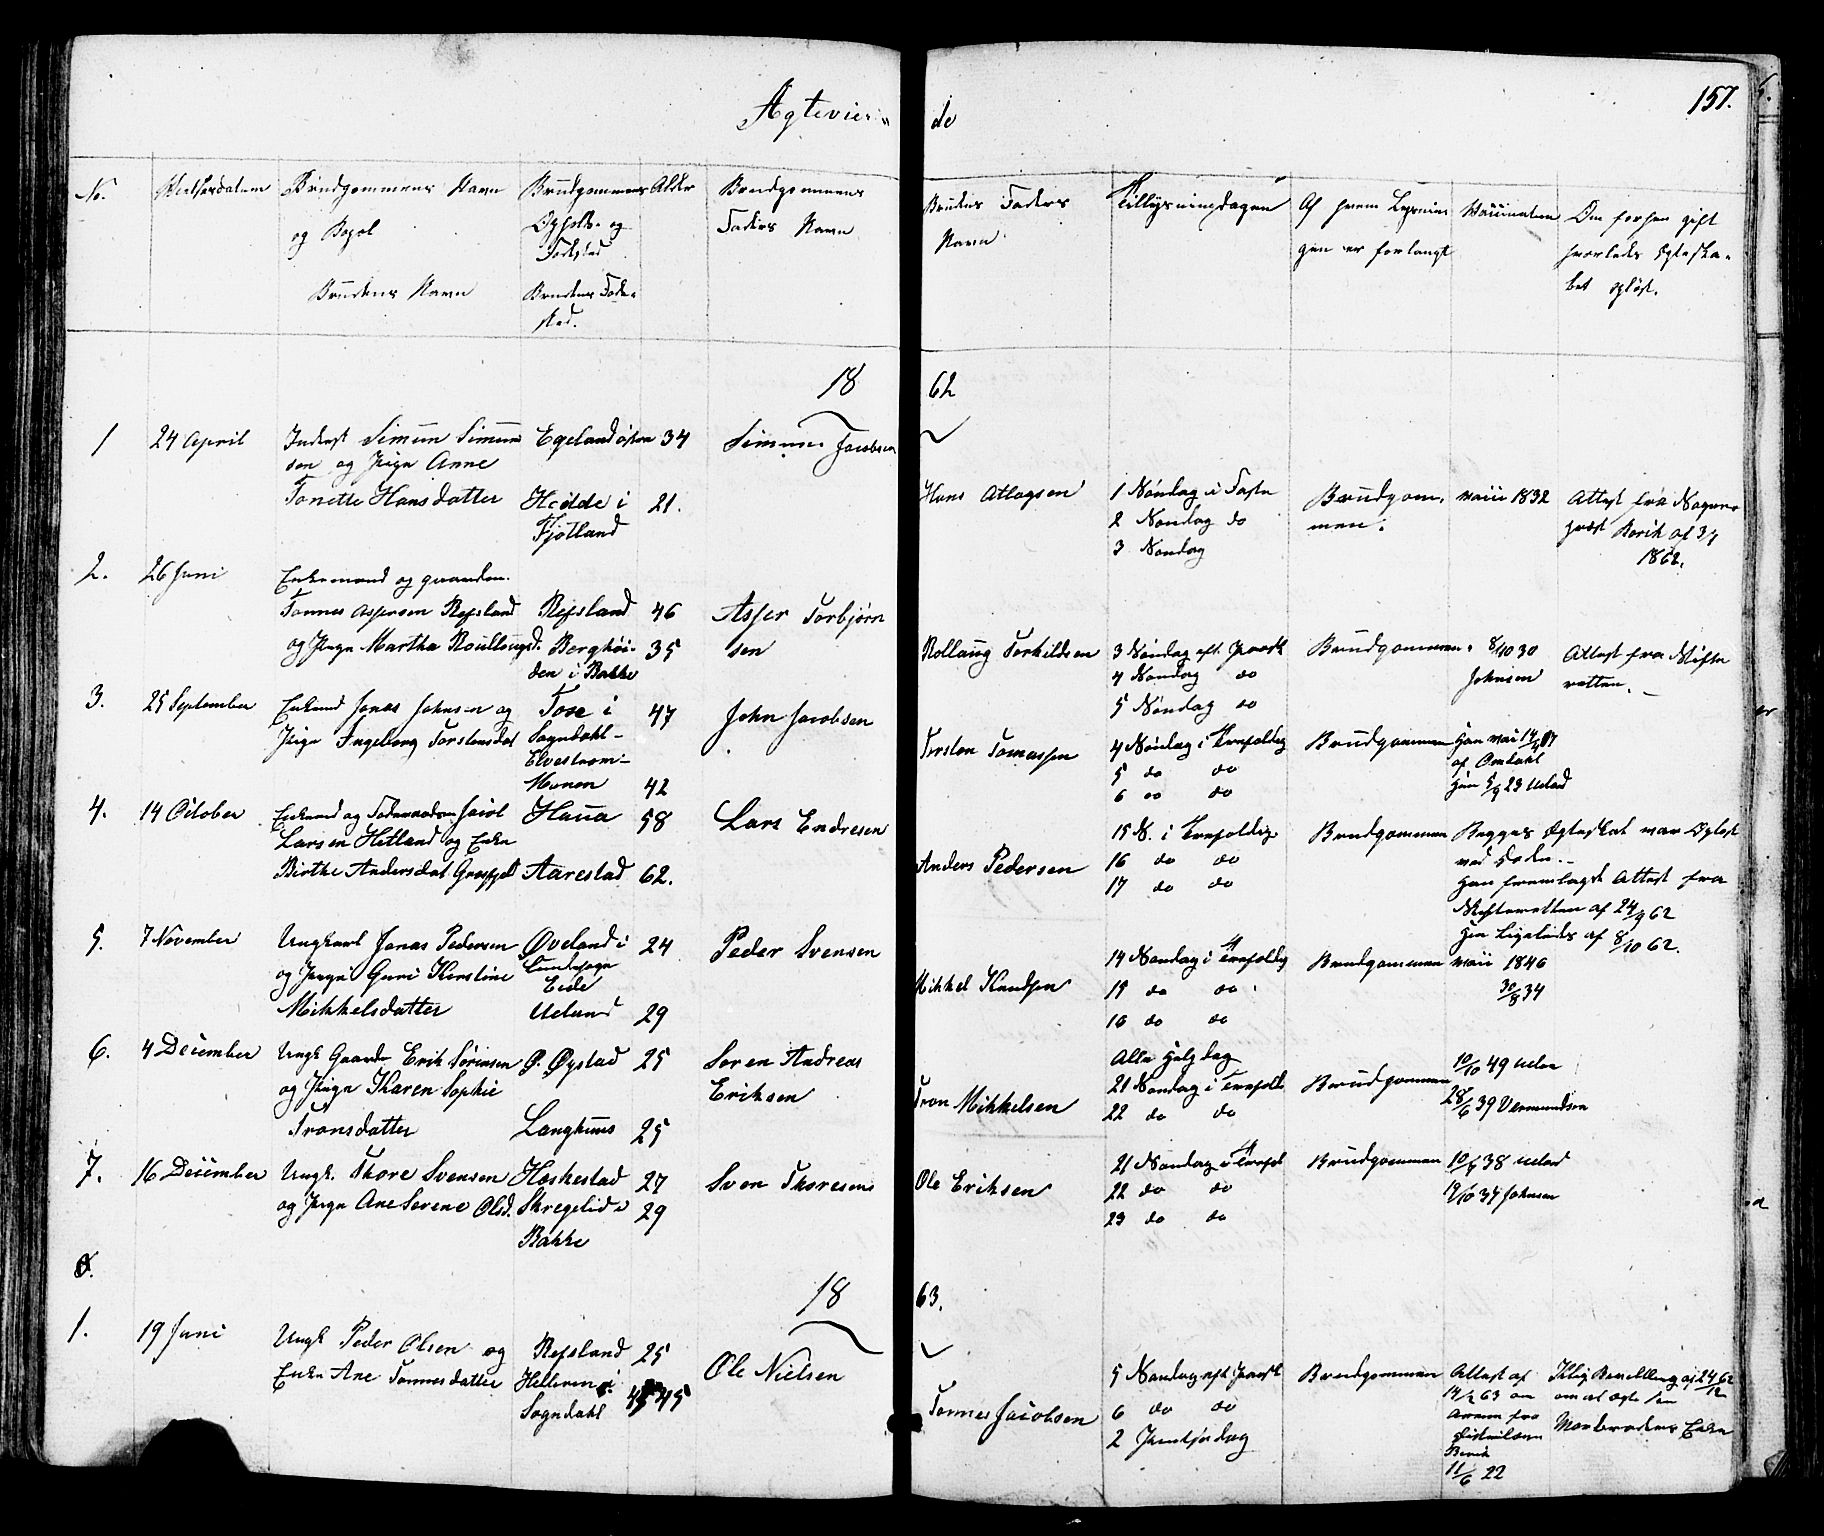 Ægtevie-
de
157.
No.
Vielsesdatum
Brudgommens Navn
og Bopæl
Brudens Navn
Brudgommens
Opholds- og
Fødested
Brudens Føde-
sted.
Alder
Brudgommens
Faders Navn
Brudens Faders
Navn
Tillysningsdagen
Af hvem Lysnin-
gen er forlangt
Vaccination
Om forhen gift
hvorledes Egteska-
bet opløst.
18
62
1
24 April
Inderst Simun Simun
sen og Pige Anne
Tonette Hansdatter
Egeland østre 34
Hedde i 21.
Fjotland
Simun Jacobsen
Hans Atlagsen
1 Søndag i Faste
2 Søndag do
3 Søndag
Brudgom-
men.
vacc 1832
Attest fra Sogne-
præst
1862.
2.
26 Juni
Enkemand og gaardm.
Tønnes Aspersen Refsland
og Pige Martha Roullougsd.
Refsland 46
Berghøi- 35
den i Bakke
Asser Torbjørn
sen
Rollaug Terkildsen
3 Søndag eft. Paask
4 Søndag do
5 Søndag do
Brudgommen.
8/10 30
Johnsen
Attest fra Skifte
retten.
3.
25 September
Enkemd Jonas Johnsen og
Pige Ingeborg Torstensdat
Tose i 47
Sogndahl-
Elvestrøm-
Monen 42
John Jacobsen
Torsten Tomassen
4 Søndag i Trefoldig
5 do do
6 do do
Brudgommen
Han vacc 14/9 17
af Omdahl
Hun 5/9 23 Ueland
4.
14 October
Enkemd og Føderaadsm Jacob
Larsen Hetland og Enke
Birthe Andersdat
Haua 58
Aarestad 62.
Lars Endresen
Anders Pedersen
15 S. i Trefoldig
16 do do
17 do do
Brudgommen
Begges Egteskab var Opløst
ved Døden.
Han fremlagde Attest fra
Skifteretten af 24/9 62
Hun Ligeledes af 8/10 62.
5.
7 November
Ungkarl Jonas Pedersen
og Pige Guri Kirstine
Mikkelsdatter
Øveland i 24
Lundesogn
Eide
Ueland 29
Peder Svensen
Mikkel Knudsen
14 Søndag i Trefoldig
15 do do
16 do do
Brudgommen
vacc 1846
30/8 34
6.
4 December
Ungk Gaardm Erik Sørensen
og Pige Karen Sophie
Tronsdatter
Ø. Øystad 25
Langhuus 25
Søren Andreas
Eriksen
Tron Mikkelsen
Alle Helg dag
21 Søndag i Trefold
22 do do
Brudgommen
10/10 49
28/6 39 Vermundsen
7.
16 December
Ungk. Thore Svensen
og Pige Ane Serene Olsd.
Heskestad 27
Skregelid i 29
Bakke
Sven Thoresens
Ole Eriksen
21 Søndag i Trefol
22 do do
23 do do
Brudgommen
10/9 38 Uelad
19/10 34 Johnsen
8.
18
63.
1.
19 Juni
Ungk Peder Olsen og
Enke Ane Tønnesdatter
Refsland 25
Helleren i 45
Sogndahl
Ole Nielsen
Tønnes Jacobsen
5 Søndag eft Paask
6 do do
2 Pintsedag
Brudgommen
Attest af
14/2 63 om
fra
11/6 22
Kglig Bevilling af 24/12 62
om at egte sin
Morbroders Enke